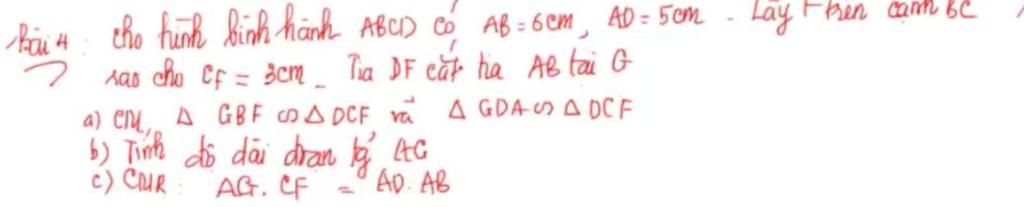 Bài 4: cho hình bình hành ABCD có AB = 6cm, AD = 5cm. Lấy F trên cạnh BC
sao cho CF = 3cm. Tia DF cắt tia AB tại G
a) CM, Δ GBF ∽ Δ DCF và Δ GDA ∽ Δ DCF
b) Tính độ dài đoạn tg AG
c) CMR: AG. CF = AD. AB